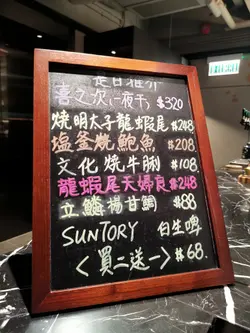 是日推介
喜之次(一夜干) $320
燒明太子龍蝦尾 $248
塩釜燒鮑魚 $208
文化燒牛脷 $108
龍蝦尾天婦良 $248
立鱗揚甘鯛 $88
SUNTORY 白生啤
〈買二送一〉 $68.